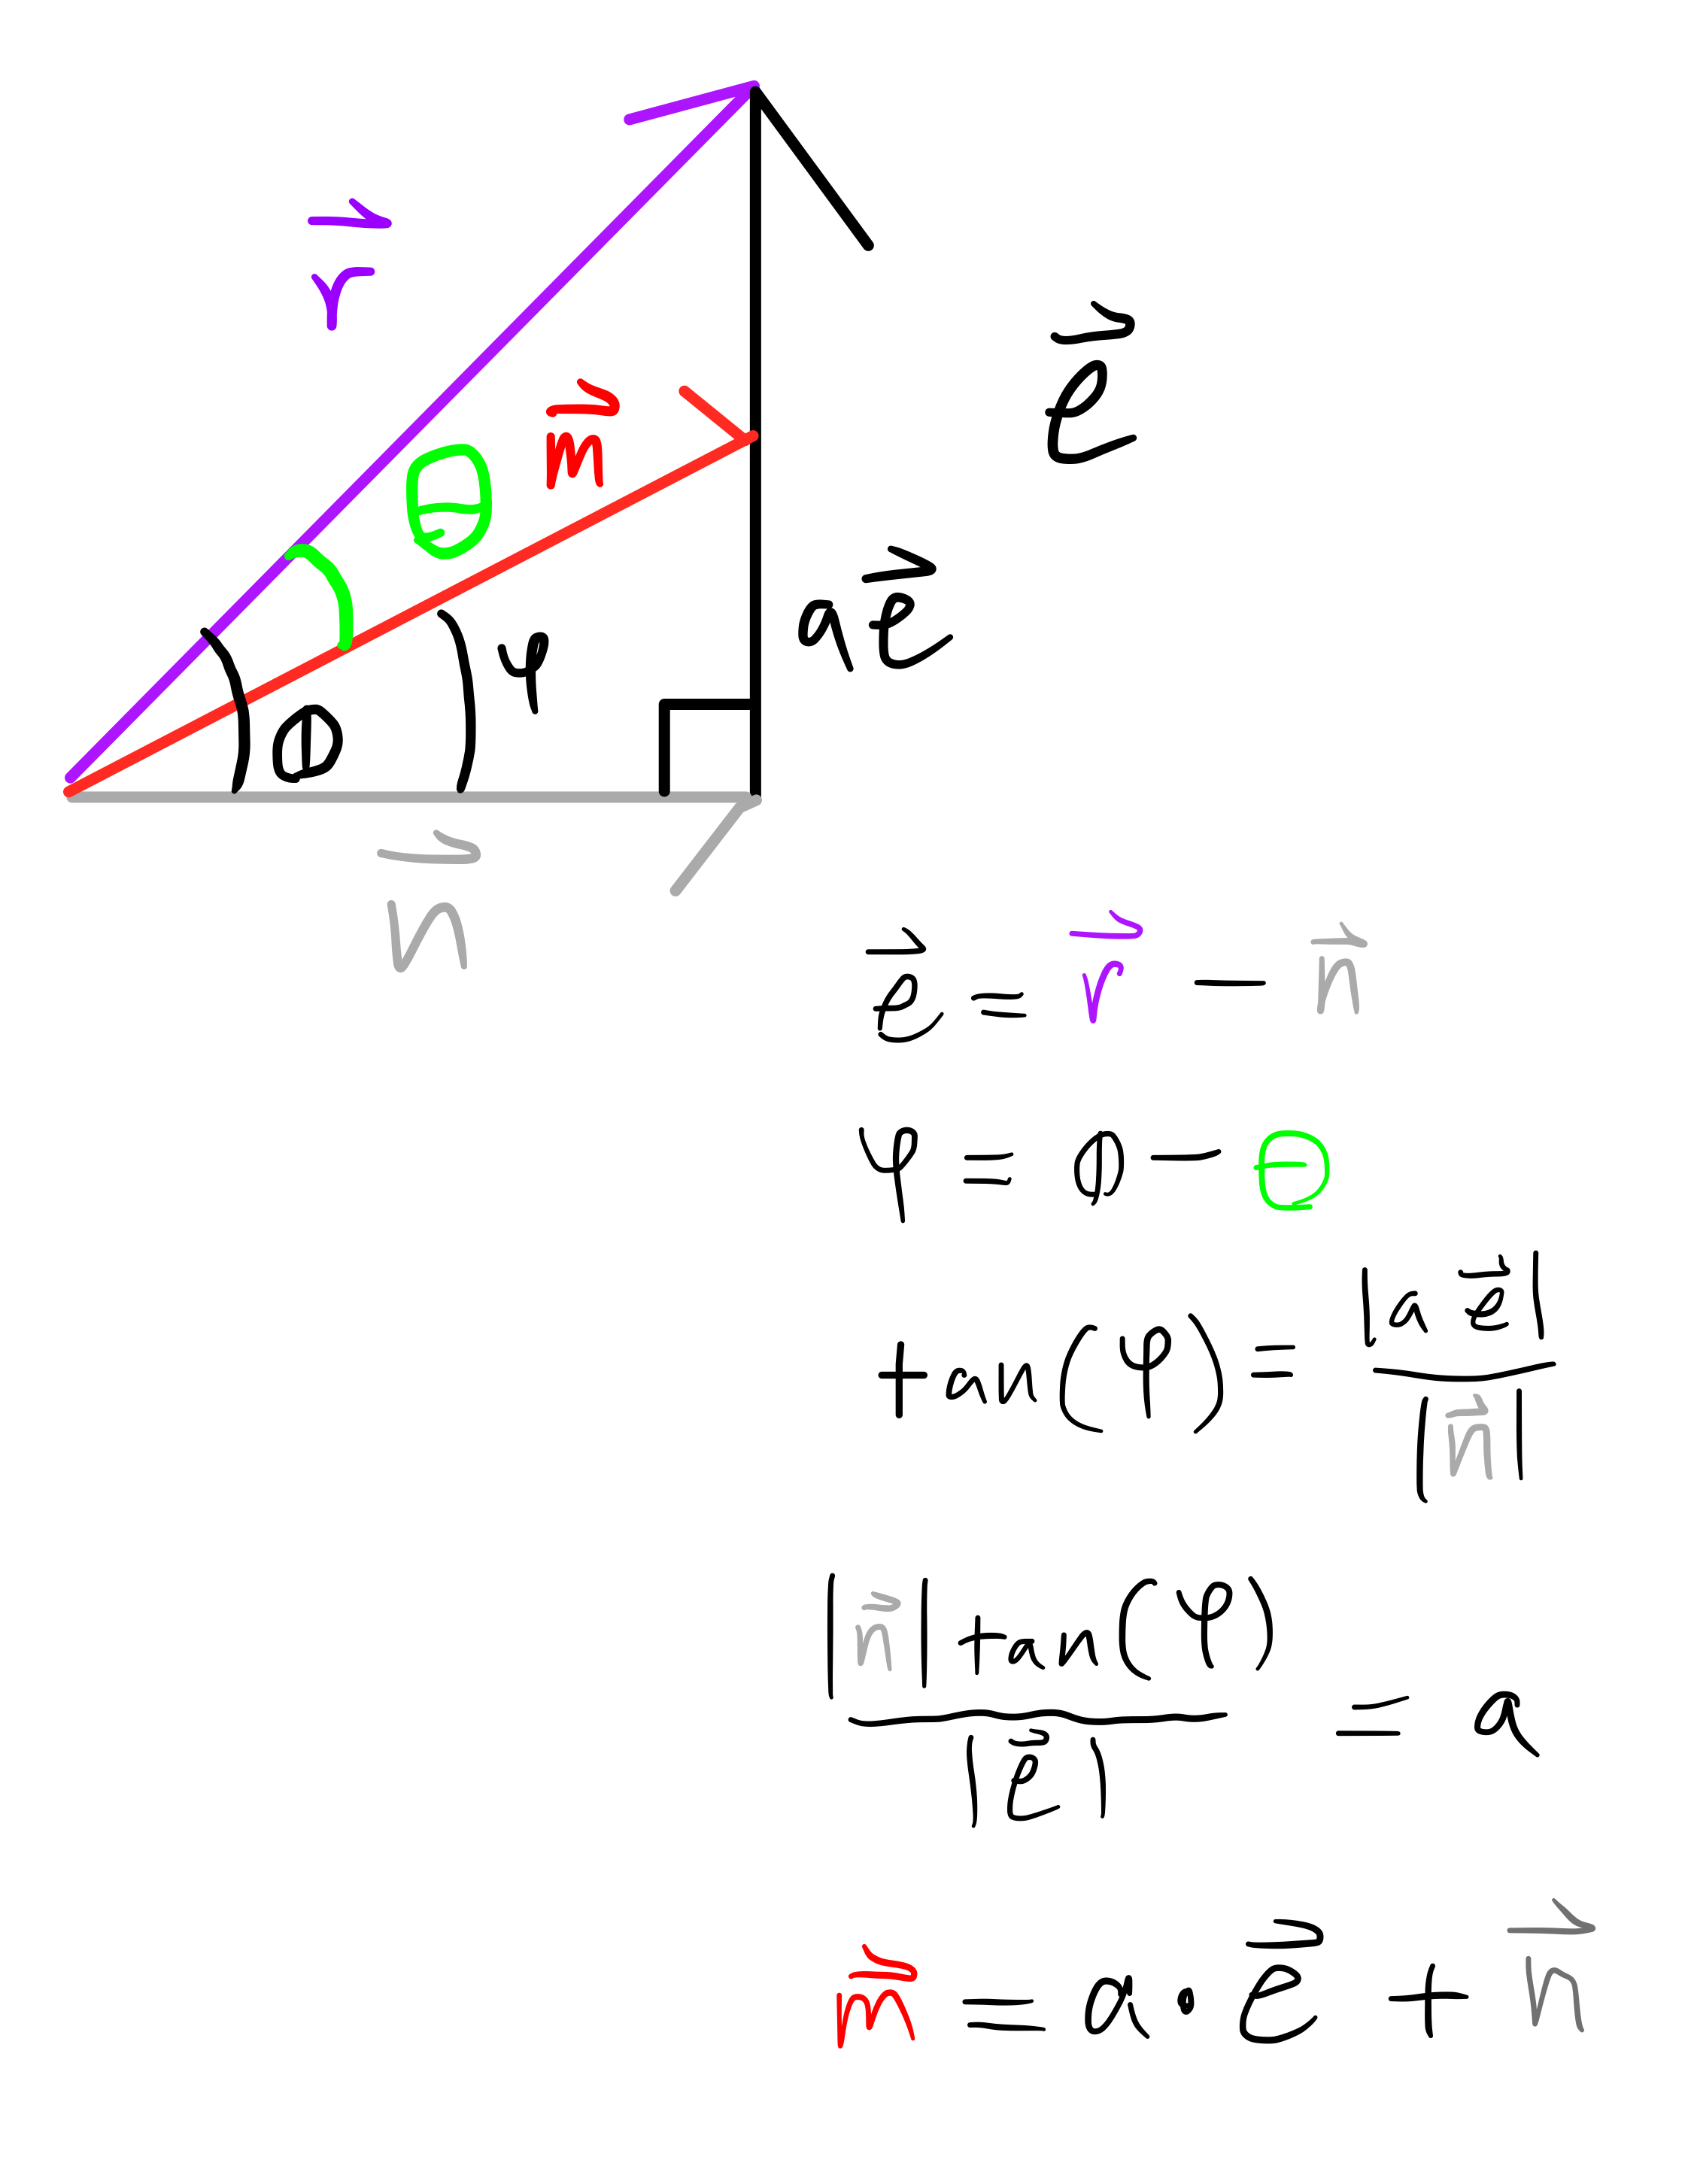 r⃗
e⃗
m⃗
θ
ae⃗
φ
Φ
n⃗
e⃗ = r⃗ − n⃗
φ = Φ − θ
tan(φ) = |a e⃗| / |n⃗|
|n⃗| tan(φ) / |e⃗| = a
m⃗ = a · e⃗ + n⃗